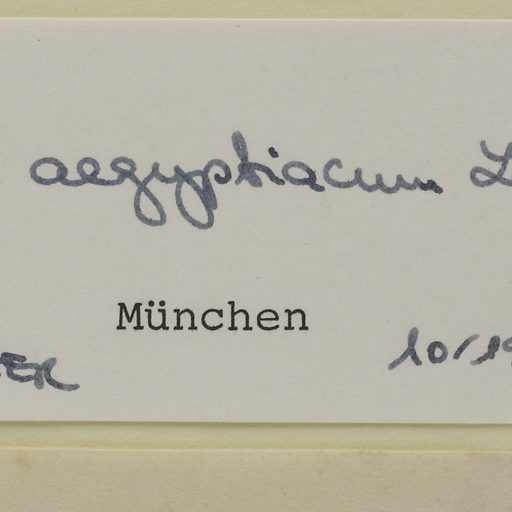 aegyptiacum L
München
ER 10/19